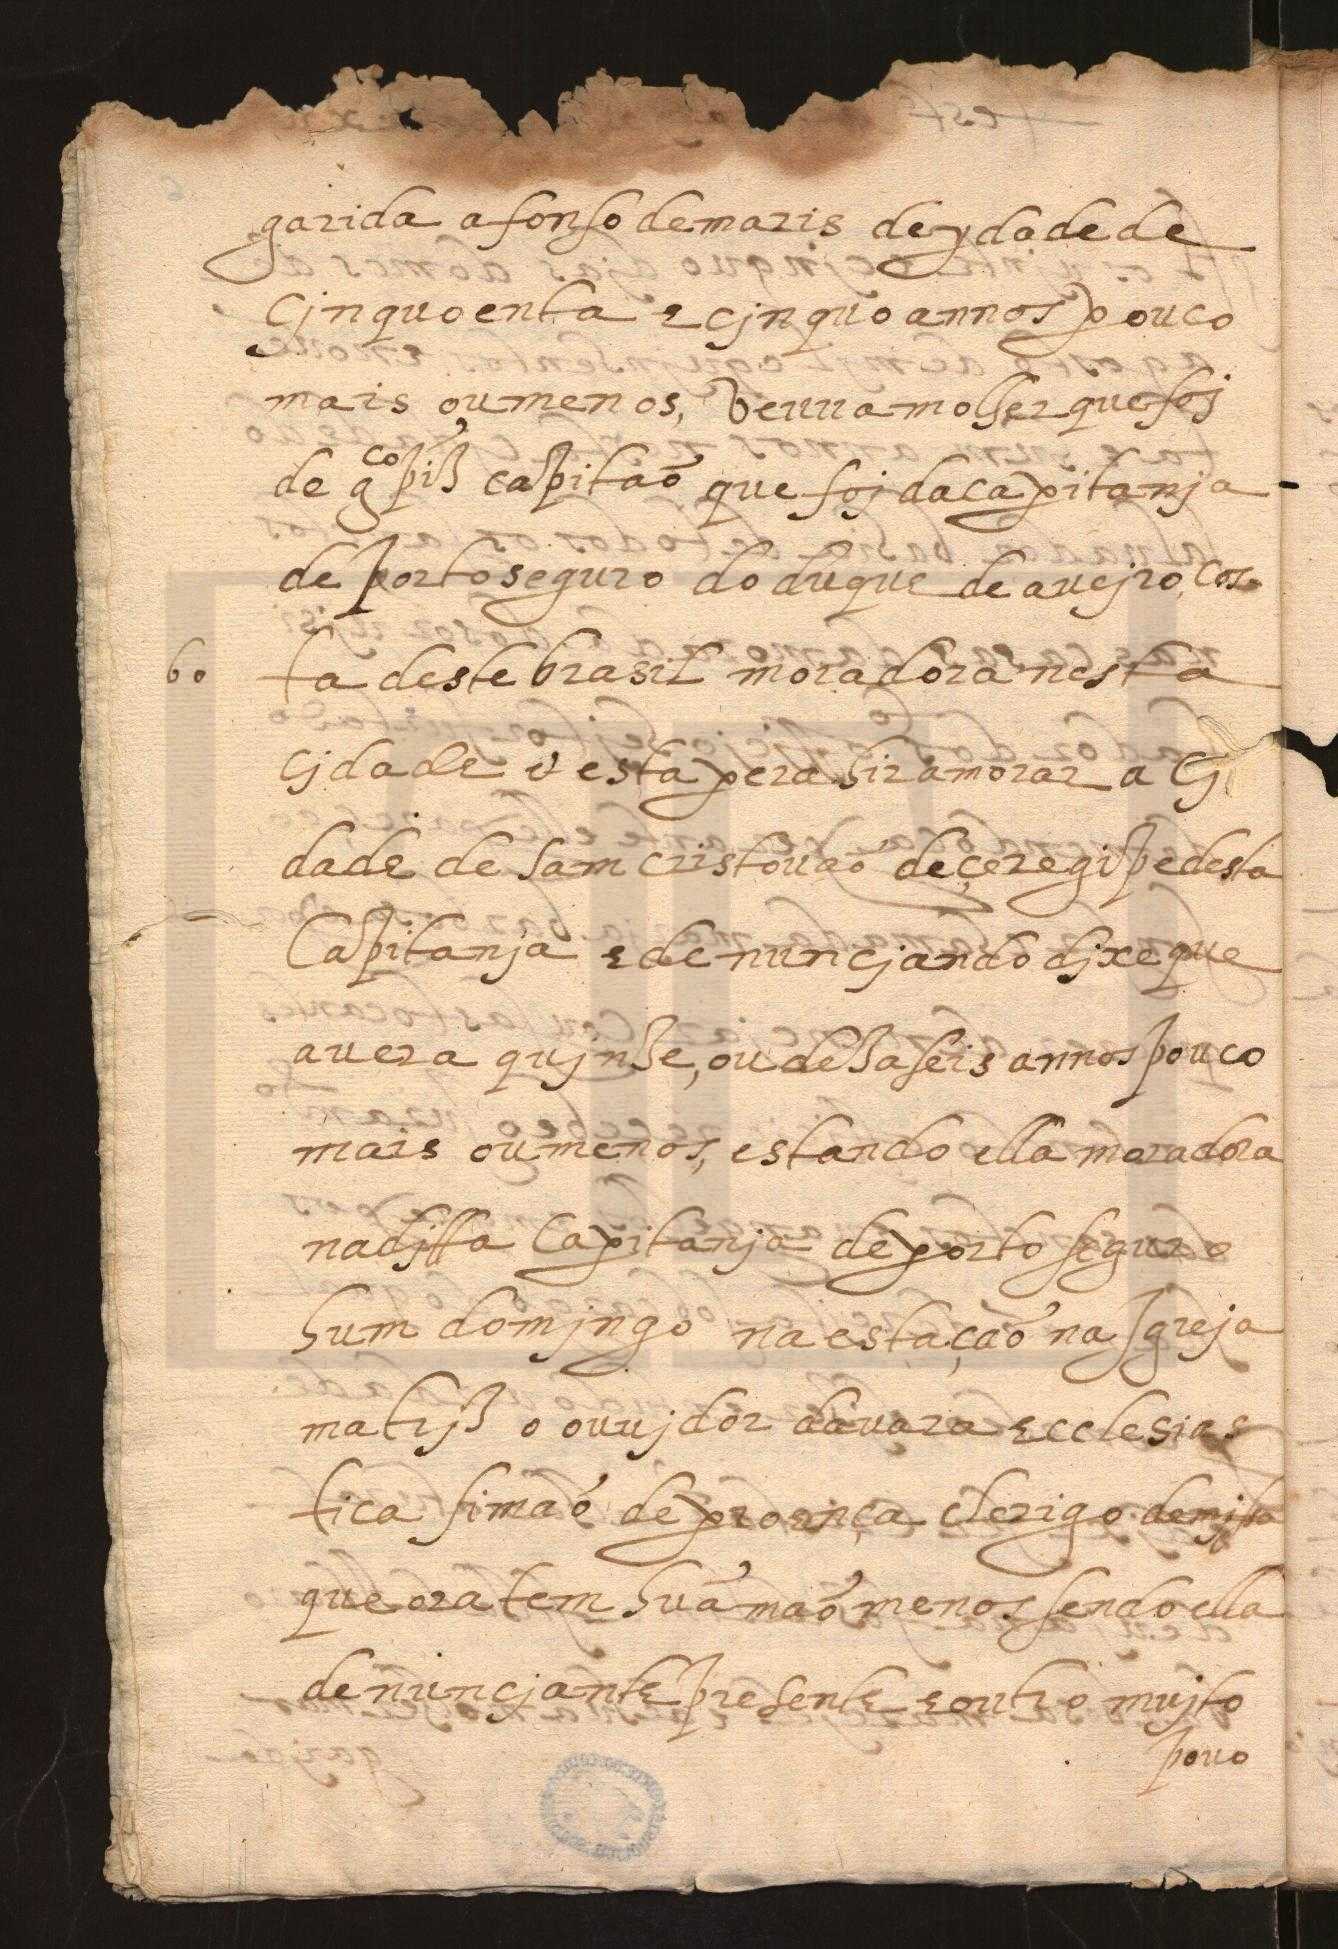 garida afonso de maris de ydade de
cjnquoenta e cjnquo annos pouco
mais ou menos, veuva molher que foj
de g.co piz capitaõ que foj da capitanja
de porto seguro do duque de aueiro, cos
60 ta deste brasil moradora nesta
cjdade e esta pera hir a morar a cj
dade de sam cristouaõ de çeregipe desta
capitanja e denuncjando djxe que
auera qujnze, ou dezaseis annos pouco
mais ou menos, estando ella moradora
na djtta capitanja de porto seguro
hum domjngo na estaçaõ na Igreja
matrjz o ouujdor da uara ecclesias
tica simaõ de proença clerigo de missa
que ora tem huã maõ menos sendo ella
denuncjante presente e outro mujto
pouo